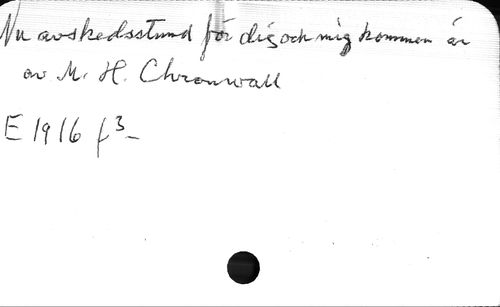 Nu avskedsstund för dig och mig kommen är
av M. H. Chronwall
E 1916 f 3-